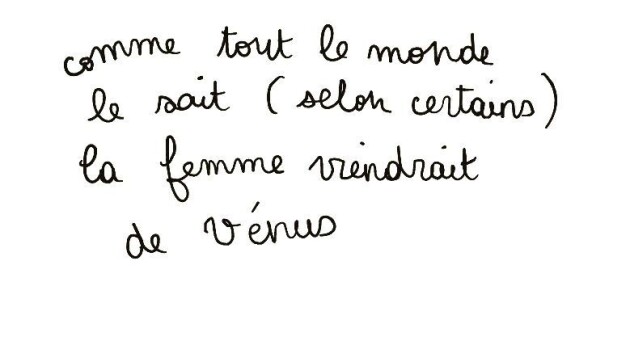 comme tout le monde
le sait (selon certains)
la femme viendrait
de vénus